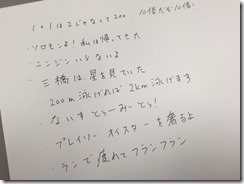 ・1+1は2じゃなくて200。10倍だぞ10倍!
・ソロモンよ!私は帰ってきた
・ニンジンいらないよ
・三橋は、星を見ていた
・200m泳げれば2km泳げます
・ないすとぅーみーとぅ!
・プレイリーオイスターを奢るよ
・ランで疲れてフランフラン